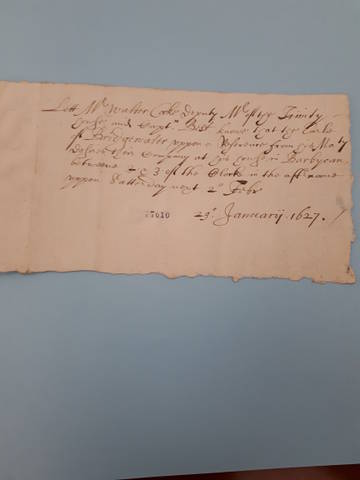 Lett Mr Walter Coke Deputy Mr of the Trinity
house and Capt. Best know that the Earle
of Bridgewater uppon a Reference from his Maty
desires their Company at his house in Barbycan
betweene 2 & 3 of the Clocke in the afternoone
uppon Satterday next 2o Febr
29o. Januarij. 1627.